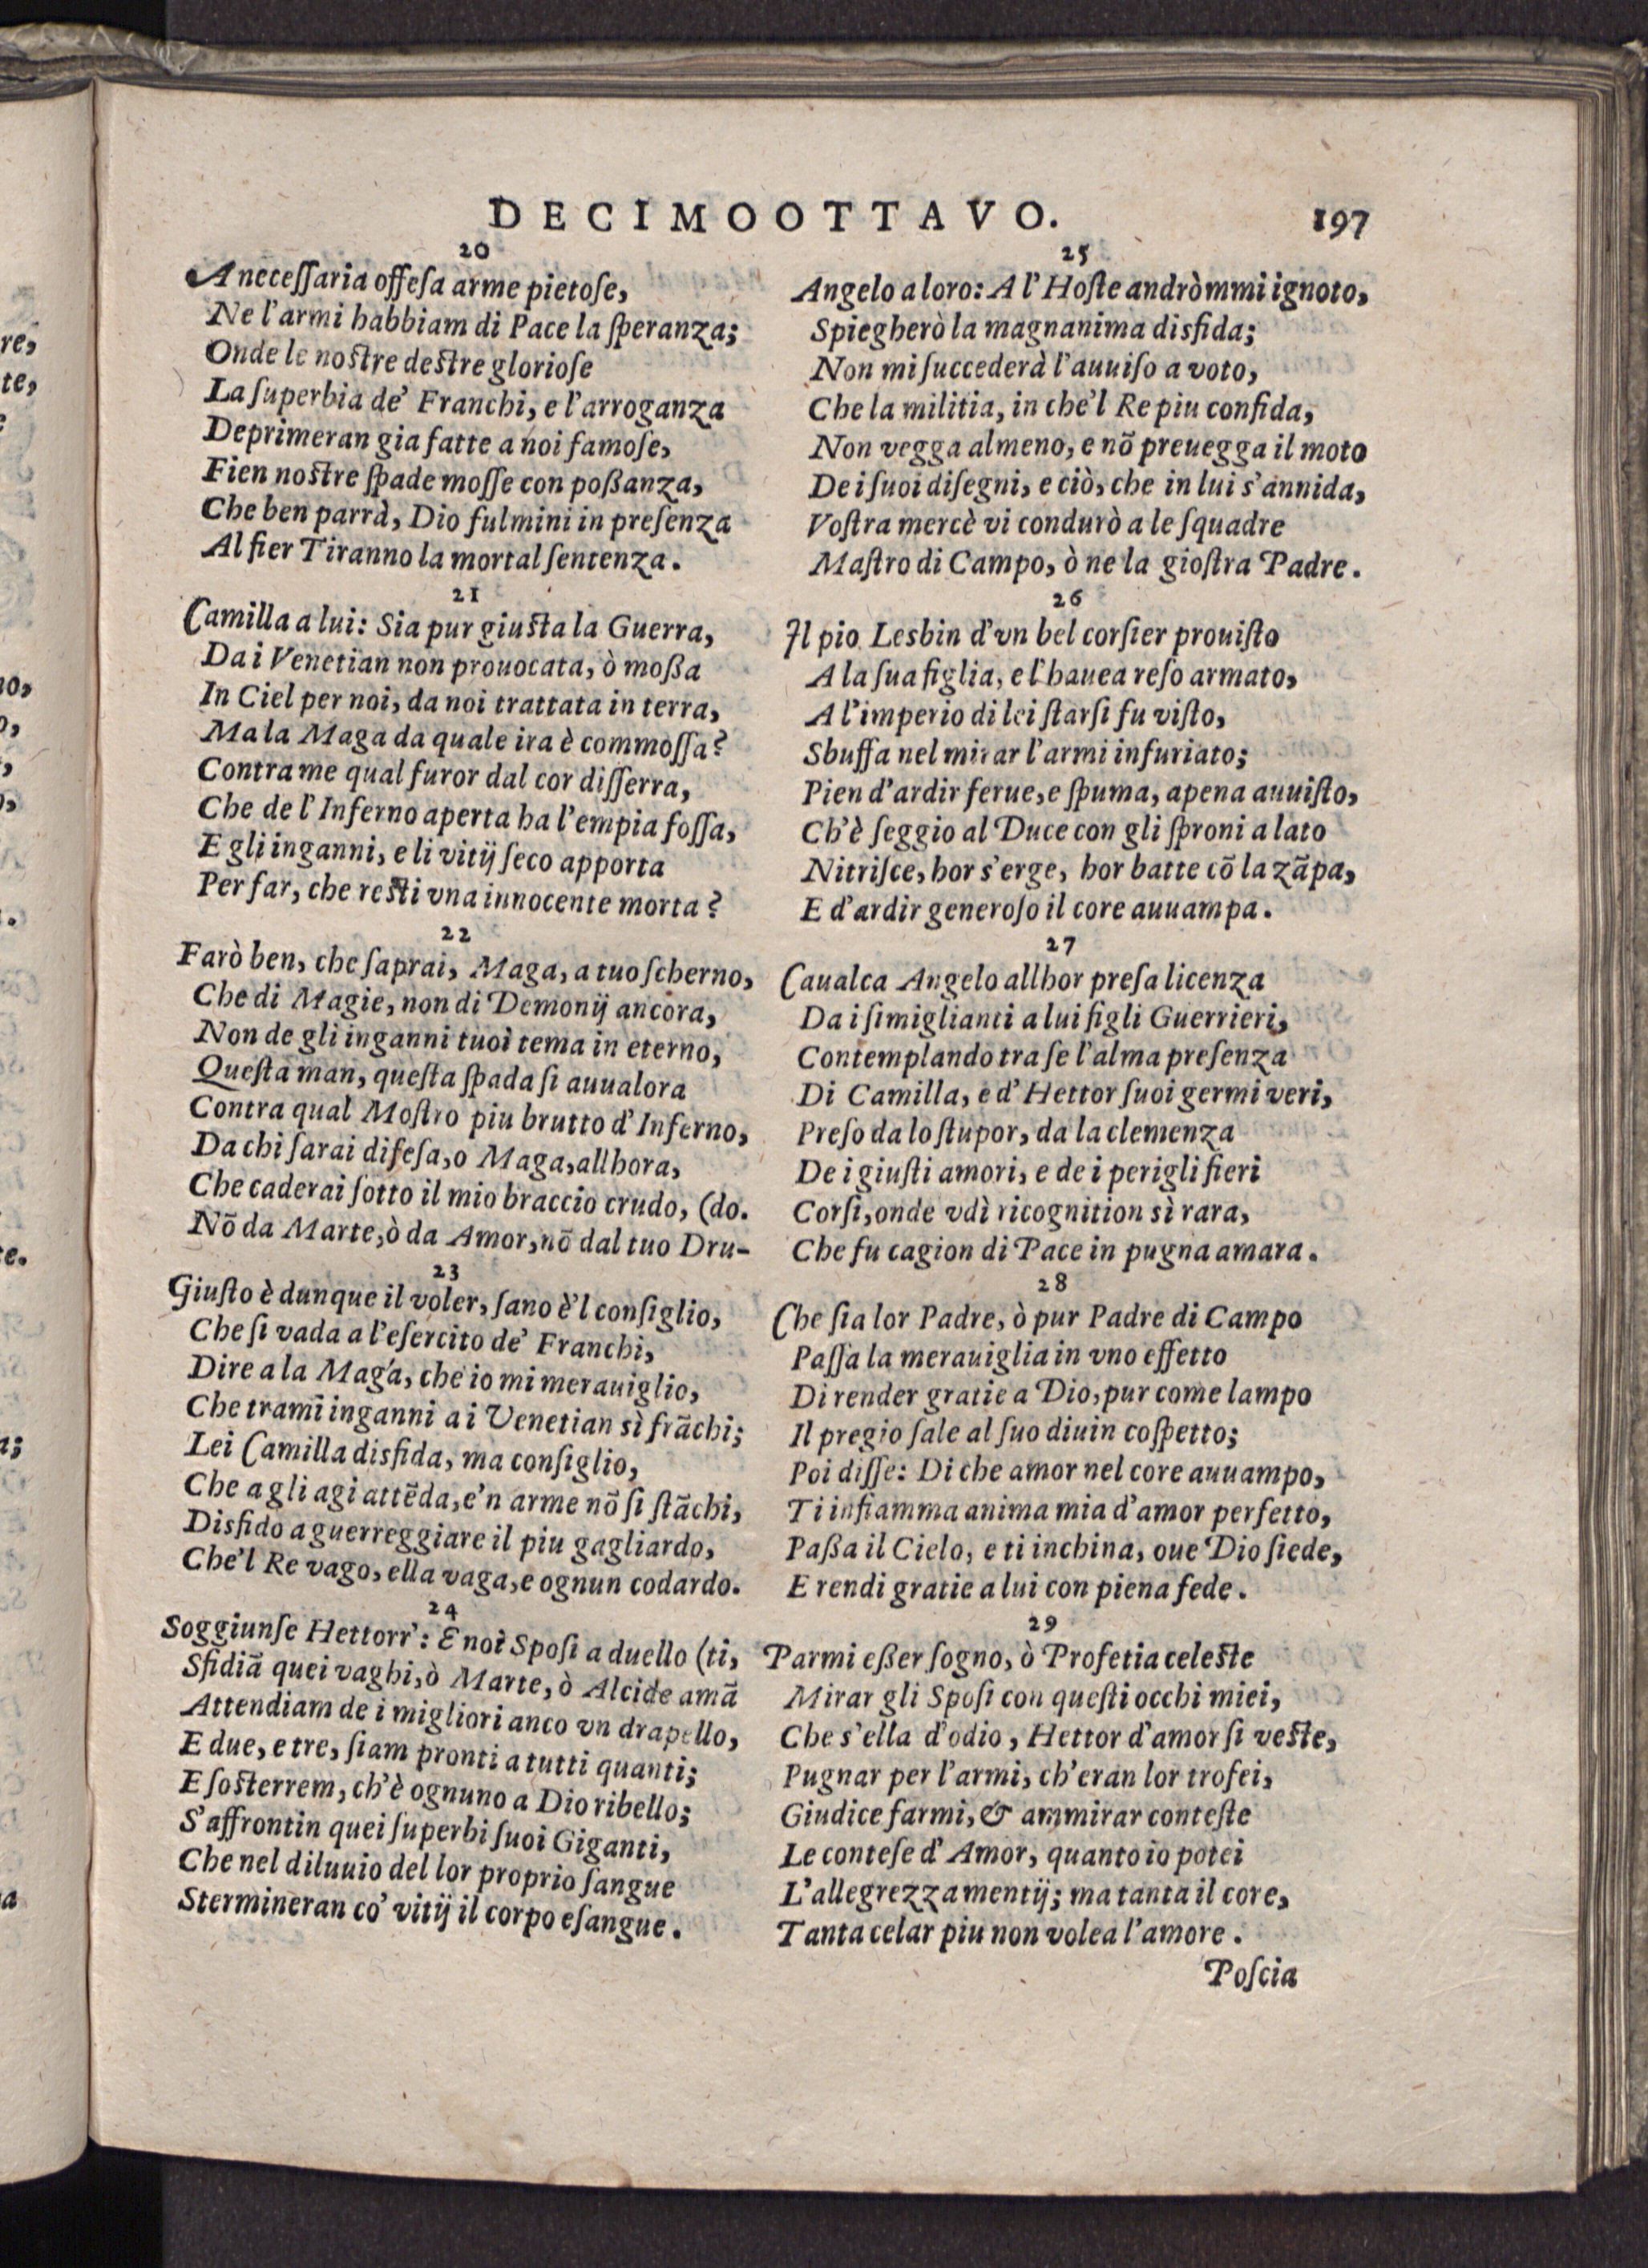 DECIMOOTTAVO. 197
20
A necessaria offesa arme pietose,
Ne l'armi habbiam di Pace la speranza;
Onde le nostre destre gloriose
La superbia de' Franchi, e l'arroganza
Deprimeran gia fatte a noi famose,
Fien nostre spade mosse con poßanza,
Che ben parrà, Dio fulmini in presenza
Al fier Tiranno la mortal sentenza.
21
Camilla a lui: Sia pur giusta la Guerra,
Da i Venetian non prouocata, ò moßa
In Ciel per noi, da noi trattata in terra,
Ma la Maga da quale ira è commossa?
Contra me qual furor dal cor disserra,
Che de l'Inferno aperta ha l'empia fossa,
E gli inganni, e li vitij seco apporta
Per far, che resti vna innocente morta?
22
Farò ben, che saprai, Maga, a tuo scherno,
Che di Magie, non di Demonij ancora,
Non de gli inganni tuoi tema in eterno,
Questa man, questa spada si auualora
Contra qual Mostro piu brutto d'Inferno,
Da chi sarai difesa, o Maga, allhora,
Che caderai sotto il mio braccio crudo, (do.
Nõ da Marte, ò da Amor, nõ dal tuo Dru-
23
Giusto è dunque il voler, sano è'l consiglio,
Che si vada a l'esercito de' Franchi,
Dire a la Maga, che io mi merauiglio,
Che trami inganni a i Venetian sì frãchi;
Lei Camilla disfida, ma consiglio,
Che a gli agi attẽda, e'n arme nõ si stãchi,
Disfido a guerreggiare il piu gagliardo,
Che'l Re vago, ella vaga, e ognun codardo.
24
Soggiunse Hettorr': E noi Sposi a duello (ti,
Sfidiã quei vaghi, ò Marte, ò Alcide amã
Attendiam de i migliori anco vn drapello,
E due, e tre, siam pronti a tutti quanti;
E sosterrem, ch'è ognuno a Dio ribello;
S'affrontin quei superbi suoi Giganti,
Che nel diluuio del lor proprio sangue
Stermineran co' vitij il corpo esangue.
25
Angelo a loro: A l'Hoste andròmmi ignoto,
Spiegherò la magnanima disfida;
Non mi succederà l'auuiso a voto,
Che la militia, in che'l Re piu confida,
Non vegga almeno, e nõ preuegga il moto
De i suoi disegni, e ciò, che in lui s'annida,
Vostra mercè vi condurò a le squadre
Mastro di Campo, ò ne la giostra Padre.
26
Il pio Lesbin d'vn bel corsier prouisto
A la sua figlia, e l'hauea reso armato,
A l'imperio di lei starsi fu visto,
Sbuffa nel mirar l'armi infuriato;
Pien d'ardir ferue, e spuma, apena auuisto,
Ch'è seggio al Duce con gli sproni a lato
Nitrisce, hor s'erge, hor batte cõ la zãpa,
E d'ardir generoso il core auuampa.
27
Caualca Angelo allhor presa licenza
Da i simiglianti a lui figli Guerrieri,
Contemplando tra se l'alma presenza
Di Camilla, e d'Hettor suoi germi veri,
Preso da lo stupor, da la clemenza
De i giusti amori, e de i perigli fieri
Corsi, onde vdì ricognition sì rara,
Che fu cagion di Pace in pugna amara.
28
Che sia lor Padre, ò pur Padre di Campo
Passa la merauiglia in vno effetto
Di render gratie a Dio, pur come lampo
Il pregio sale al suo diuin cospetto;
Poi disse: Di che amor nel core auuampo,
Ti infiamma anima mia d'amor perfetto,
Paßa il Cielo, e ti inchina, oue Dio siede,
E rendi gratie a lui con piena fede.
29
Parmi eßer sogno, ò Profetia celeste
Mirar gli Sposi con questi occhi miei,
Che s'ella d'odio, Hettor d'amor si veste,
Pugnar per l'armi, ch'eran lor trofei,
Giudice farmi, & ammirar conteste
Le contese d'Amor, quanto io potei
L'allegrezza mentij; ma tanta il core,
Tanta celar piu non volea l'amore.
Poscia